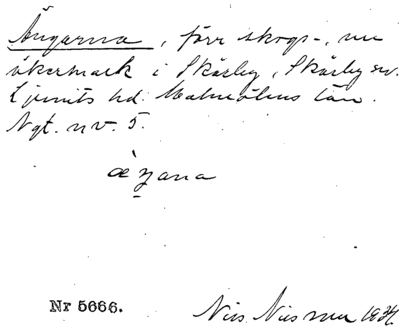 Ängarna, förr skogs-, nu
åkermark i Skårby, Skårby sn.
Ljunits hd. Malmöhus län.
Ngt. n v. 5.
Nr 5666.
Nils Nilsson 1934.